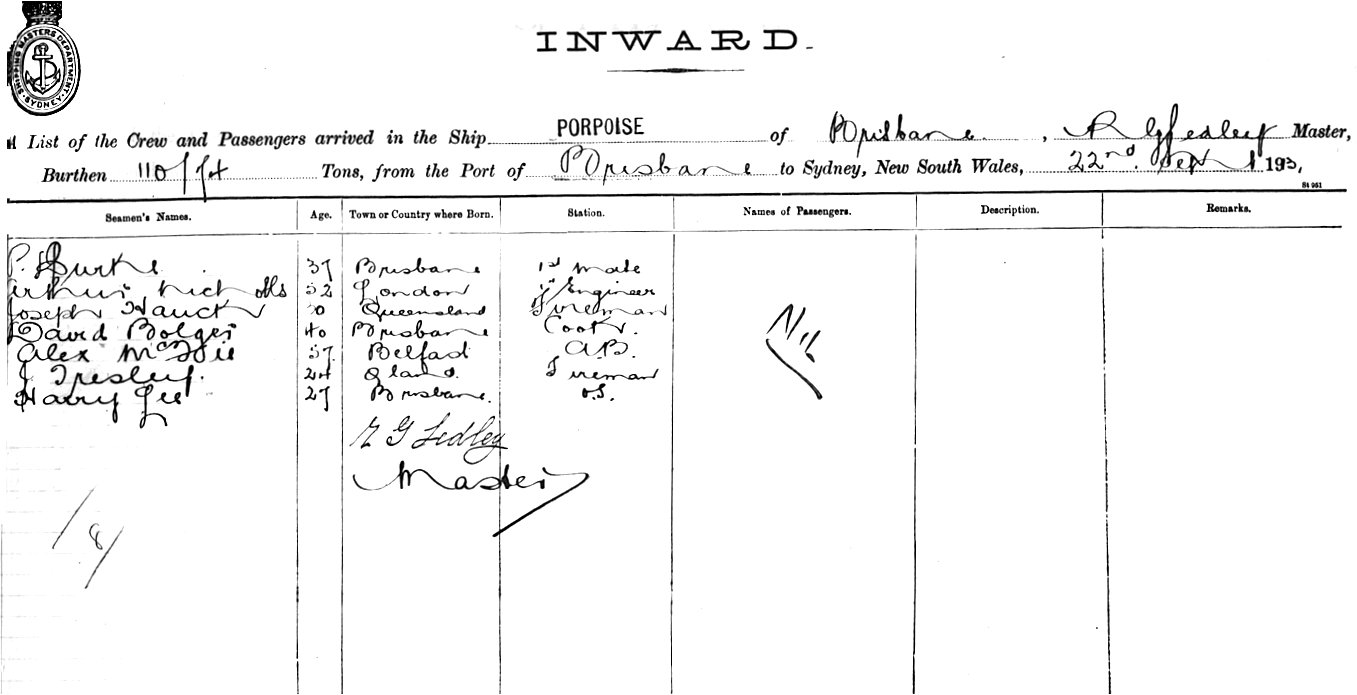 SHIPPING MASTERS DEPARTMENT · SYDNEY ·
INWARD.
List of the Crew and Passengers arrived in the Ship PORPOISE of Brisbane, R G Sedley Master,
Burthen 110 Tons, from the Port of Brisbane to Sydney, New South Wales, 22nd. Sept 193
St 961
Seamen's Names. Age. Town or Country where Born. Station. Names of Passengers. Description. Remarks.
P. Burke 37 Brisbane 1st Mate
Arthur Nicholls 52 London 1st Engineer
Joseph Hauck Queensland Fireman
David Bolger 40 Brisbane Cook.
Alex 57 Belfast A.B.
J Tresley. 24 Qland. Fireman
Harry Lee 27 Brisbane. O.S.
Nil
R G Sedley
Master
/ 8 /